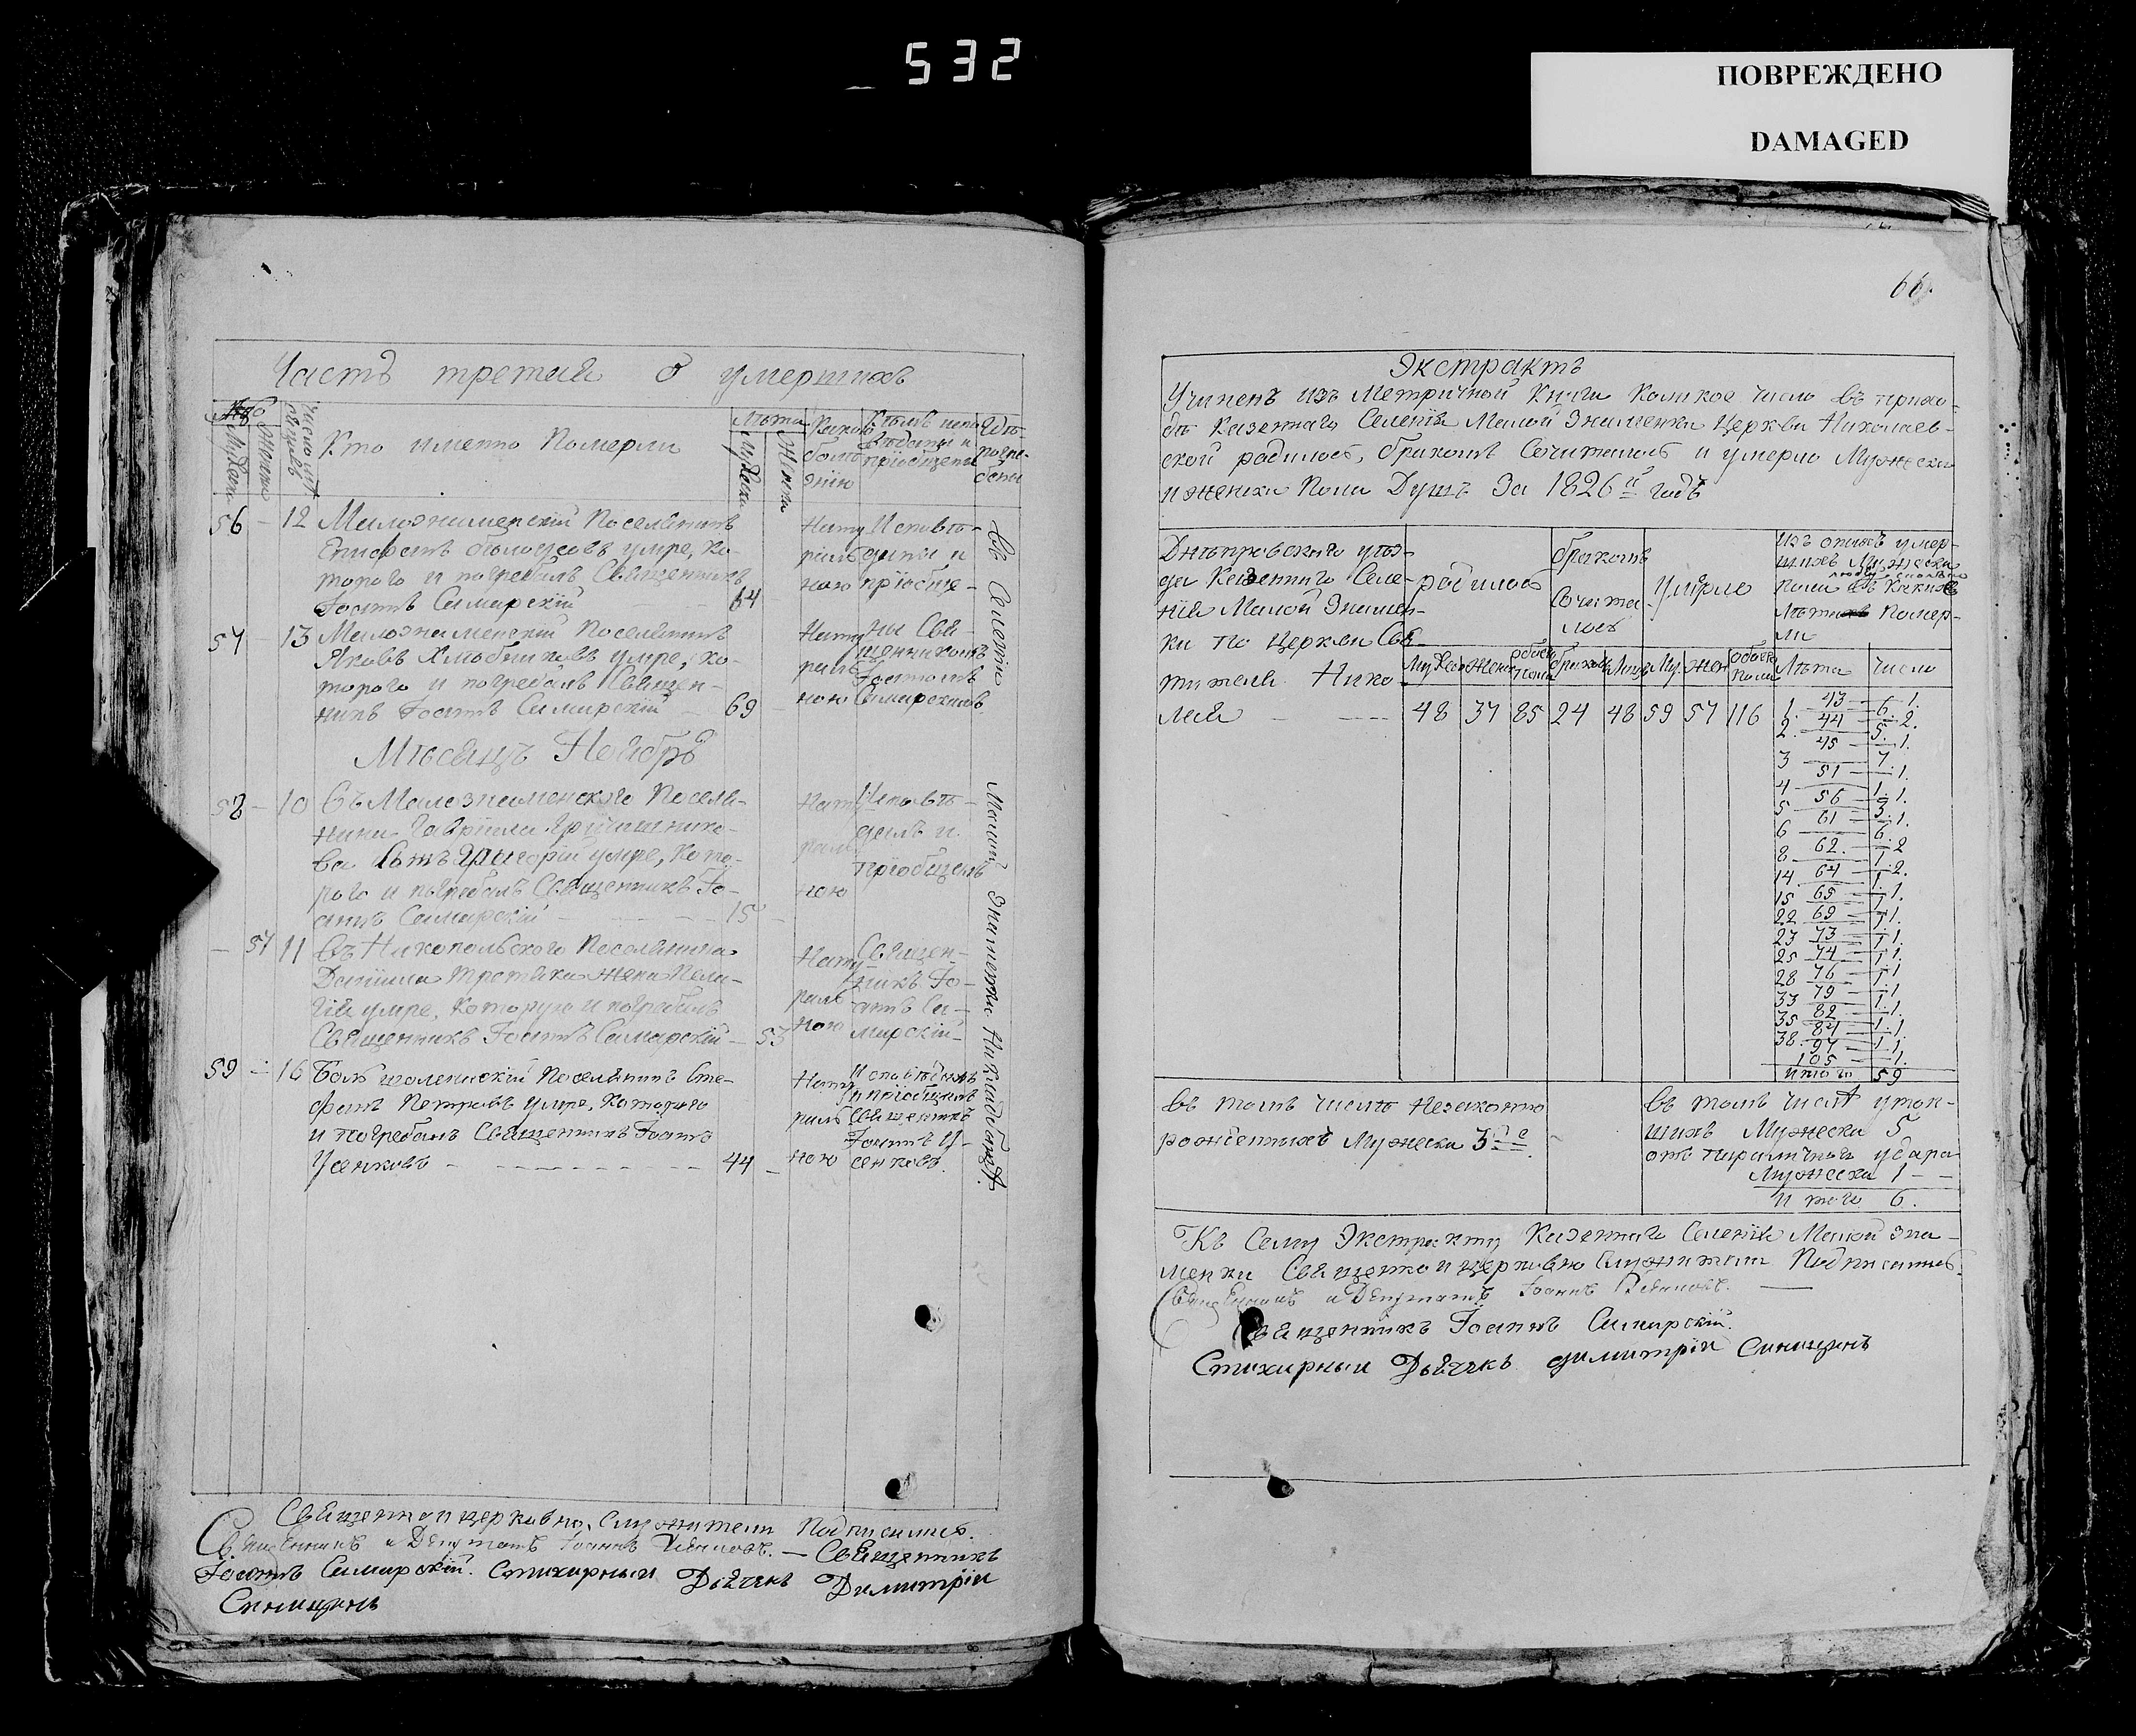 532
ПОВРЕЖДЕНО
DAMAGED
Часть третая О умершихъ
Число мѣсяцовъ
Мужеска
Женска
Кто именно Померли
Лѣта
Мужеска
Женска
Какою болѣзнію
Кѣмъ исповѣданы и пріобщены
Гдѣ погребены
56 - 12 Малознаменскій Поселянинъ
Епифанъ Бѣлоусовъ умре, ко-
тораго и погребалъ Священникъ
Іоаннъ Самарскій - - 64
Нату
раль
ною
Исповѣ-
даны и
пріобще-
57 - 13 Малознаменскій Поселянинъ
Яковъ Хлѣбниковъ умре, ко-
тораго и погребалъ Священ-
никъ Іоаннъ Самарскій - 69 -
Нату
раль
ною
ны Свя-
щенникомъ
Іоанномъ
Самарскимъ
Мѣсяцъ Ноябрь
58 - 10 Съ Малознаменскаго Поселя-
нина Гавріила
ва Сынъ Григорій умре, кото-
раго и погребалъ Священникъ Іо-
аннъ Самарскій - - - 15 -
Нату
раль
ною
Исповѣ-
далъ и
пріобщалъ
- 57 11 Съ Никопольского Поселянина
Даніила Третяка жена Пела-
гія умре, которую и погребалъ
Священникъ Іоаннъ Самарскій - 53
Нату
раль
ною
Священ-
никъ Іо-
аннъ Са-
марскій -
59 - 16 Поселянинъ Сте-
фанъ Петровъ умре, котораго
и погребалъ Священникъ Іоаннъ
Усенковъ - - - - 44 -
Нату
раль
ною
Исповѣдалъ
и пріобщалъ
Священникъ
Іоаннъ У-
сенковъ.
Въ Селеніи Малой Знаменки На кладбищѣ.
Священно и церковно, служители Подписались.
Священникъ и Депутатъ Іоаннъ - Священникъ
Іоаннъ Самарскій. Стихирный Дьячекъ Димитрій
Синицинъ
66.
Экстрактъ
Учиненъ изъ Метричной Книги Коликое число въ прихо-
дѣ Казеннаго Селенія Малой Знаменки Церкви Николаев-
ской родилось, бракомъ Сочиталось и умерло Мужеска
и женска Пола Душъ За 1826й годъ
Днѣпровскаго уѣз-
да Казеннаго Селе-
нія Малой Знамен-
ки по Церкви Свя-
тителя Нико-
лая - - - -
родилось
бракомъ
Сочита
лось
Умерло
Изъ онихъ умер-
шихъ Мужеска
Пола
Лѣтахъ Помер-
ли
Мужеска Женс обоего пола браков Лицъ Му жен обоего пола Лѣта число
48 37 85 24 48 59 57 116
1. 6.
2. 5.
3 7.
4 1.
5 3.
6 6.
8 1
14 1.
15 1
22 1
23 1
25 1
28 1
33 1
35 1
38. 1
43 - 1.
44 - 2.
45 - 1.
51 - 1.
56 - 1.
61 - 1.
62. - 2
64 - 2.
65 - 1.
69 - 1.
73 - 1.
74 - 1.
76 - 1
79 - 1
82 - 1
87 - 1.
97 - 1.
105 - 1.
итого 59
Въ томъ числѣ незаконно
рожденныхъ Мужеска 3
Въ томъ числѣ утоп-
шихъ Мужеска 5
отъ удара
Мужеска 1 - -
Итого 6.
Къ Сему Экстракту Казеннаго Селенія Малой Зна-
менки Священно и церковно Служители Подписались.
Священникъ и Депутатъ Іоаннъ
Священникъ Іоаннъ Самарскій.
Стихирный Дьячекъ Димитрій Синицинъ